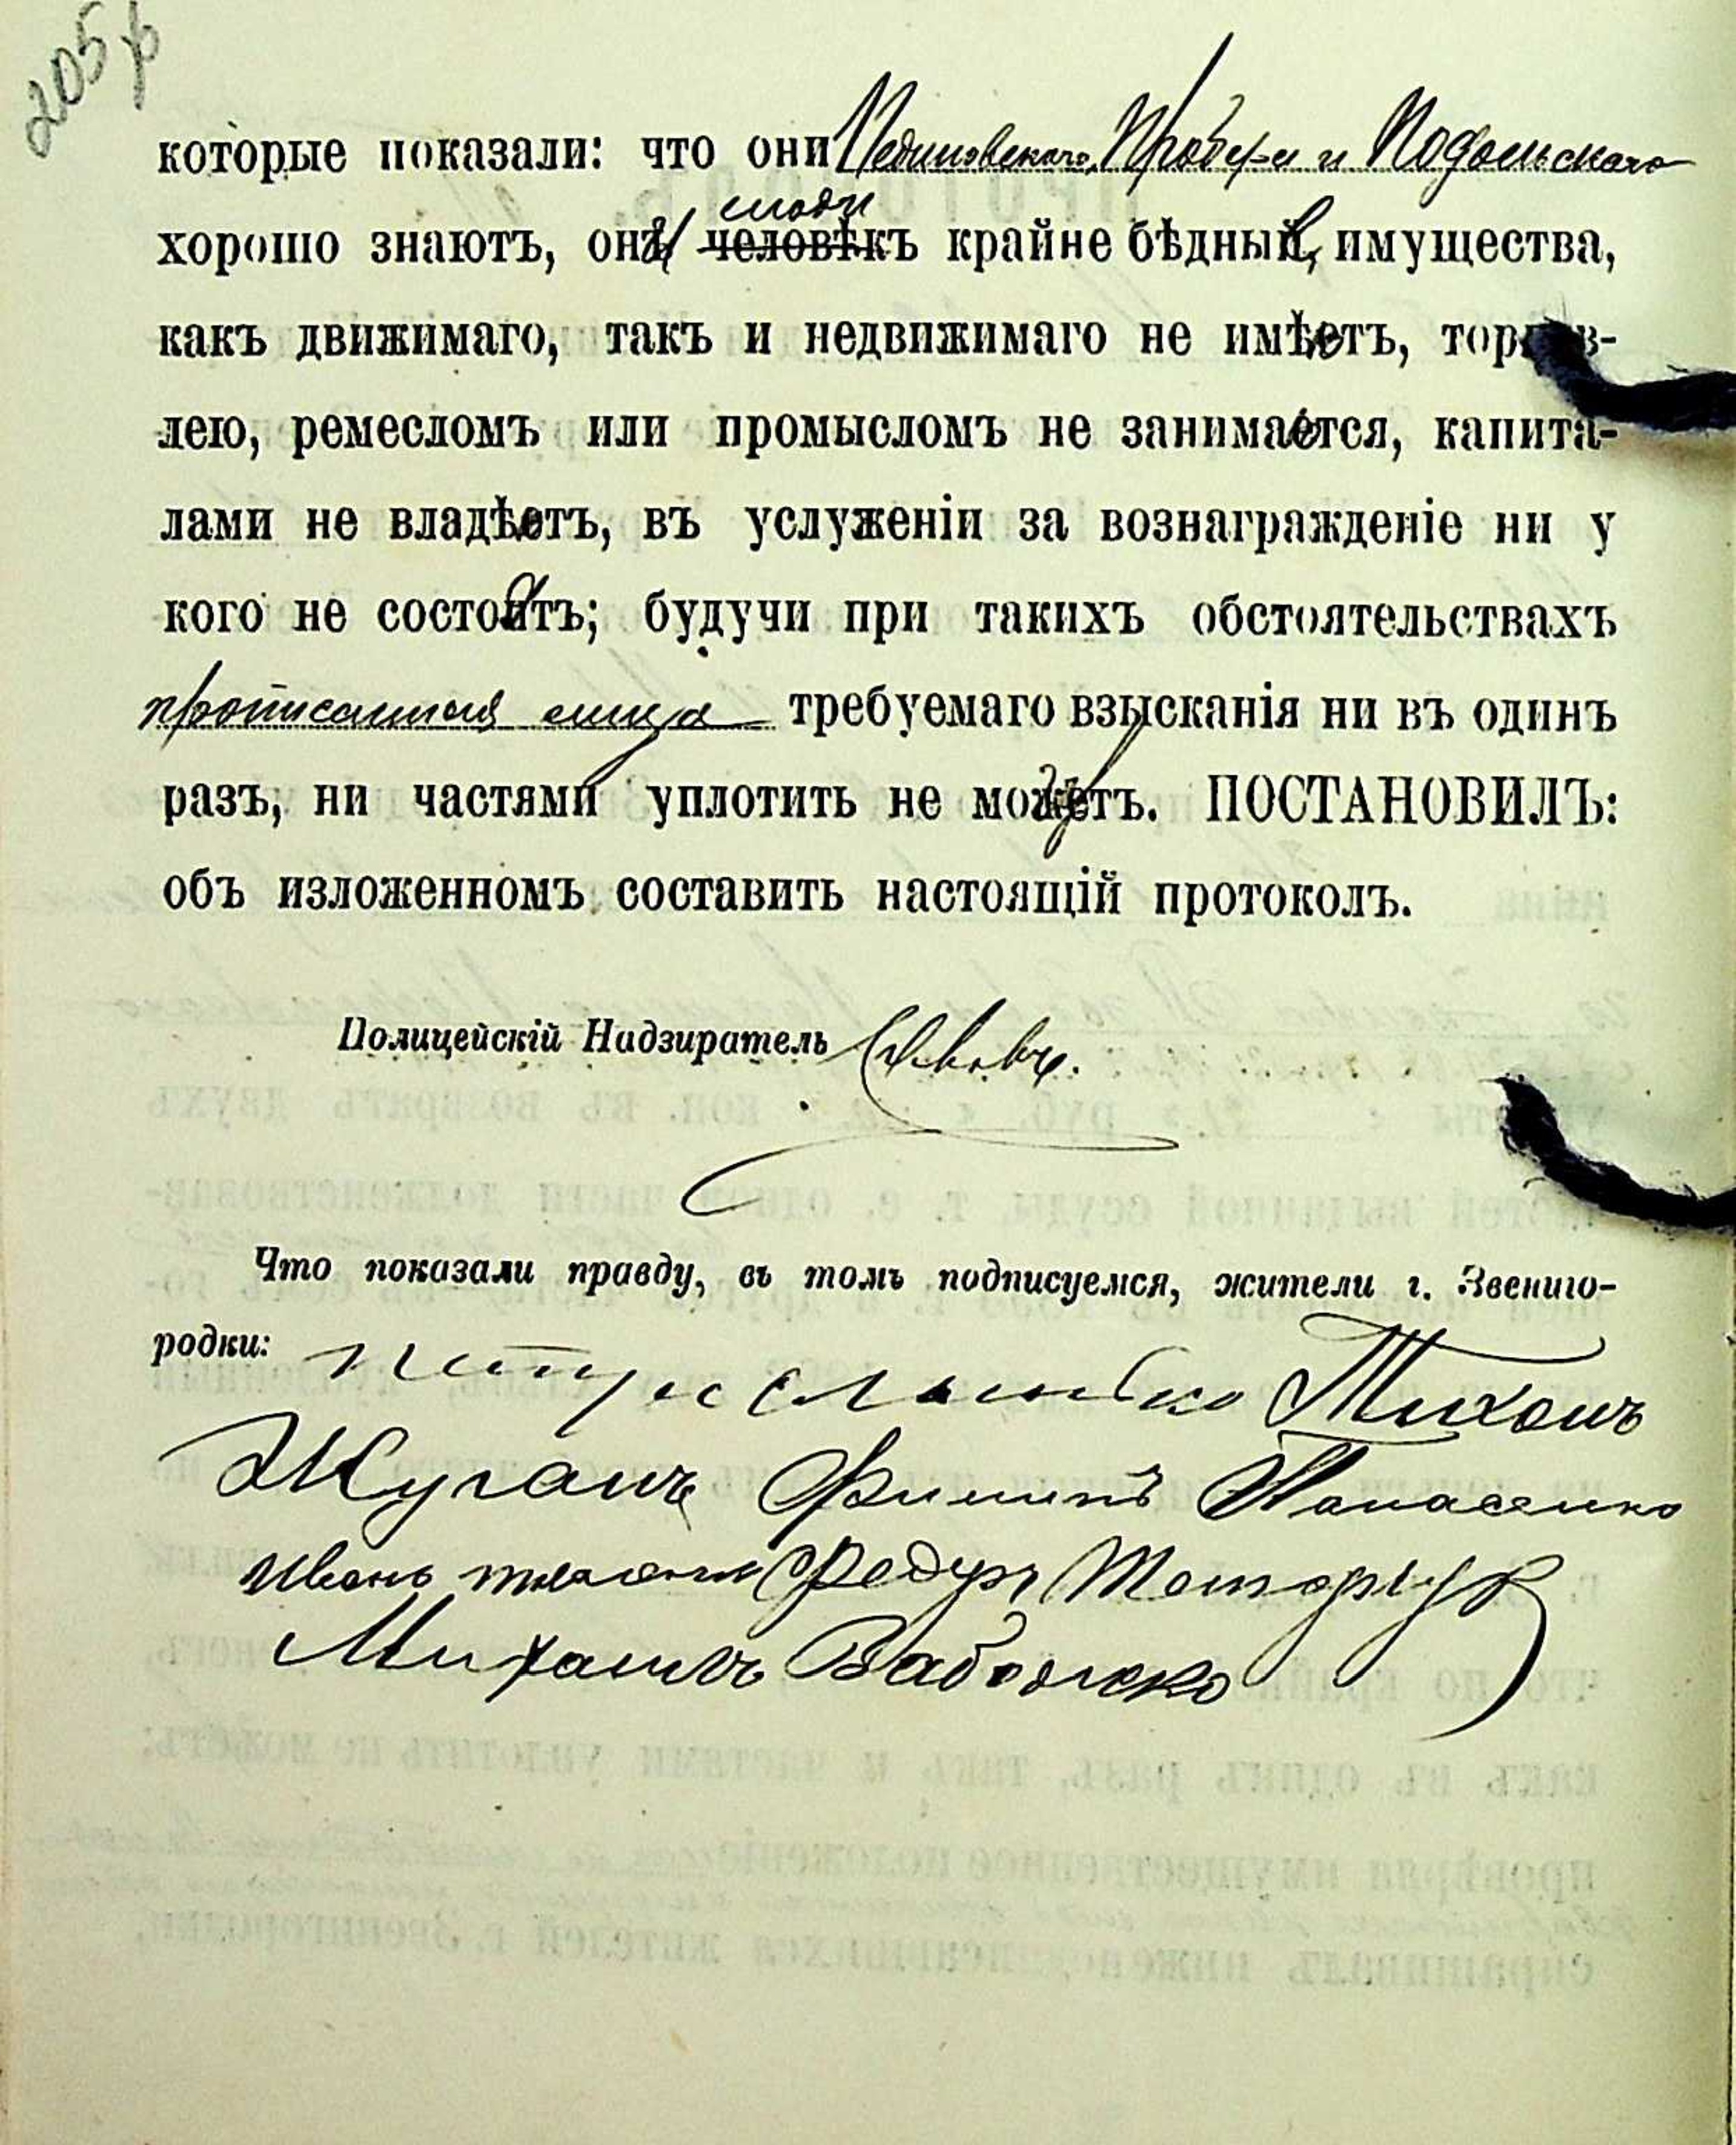 205
которые показали: что они и Подольскаго
хорошо знаютъ, они люди человѣкъ крайне бѣдный, имущества,
какъ движимаго, такъ и недвижимаго не имѣютъ, торгов-
лею, ремесломъ или промысломъ не занимаются, капита-
лами не владѣютъ, въ услуженіи за вознагражденіе ни у
кого не состоятъ; будучи при такихъ обстоятельствахъ
прописанныя лица требуемаго взысканія ни въ одинъ
разъ, ни частями уплотить не могутъ. ПОСТАНОВИЛЪ:
объ изложенномъ составить настоящій протоколъ.
Полицейскій Надзиратель
Что показали правду, въ томъ подписуемся, жители г. Звениго-
родки: Петро Тихонъ
Жуганъ Филипъ Панасенко
Иванъ Федоръ
Михаилъ